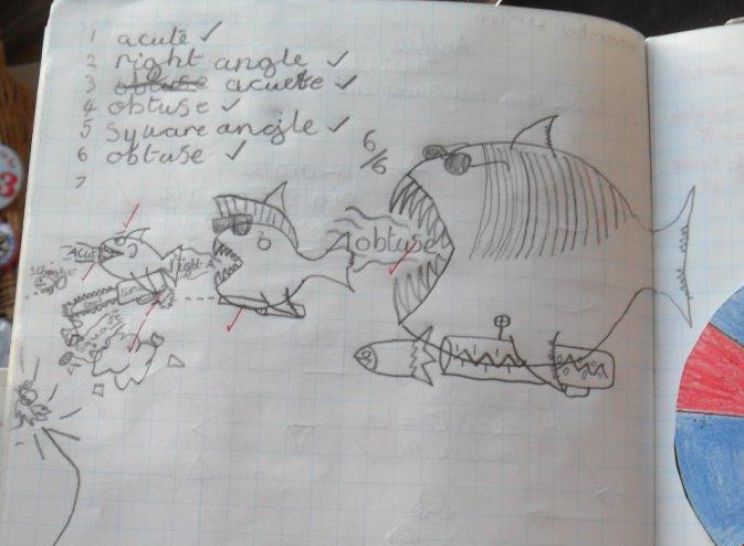 1 acute ✓
2 right angle ✓
3 obtuse acuete ✓
4 obtuse ✓
5 Syware angle ✓
6 obtuse ✓
7
6/6
obtuse
Acut
right
3